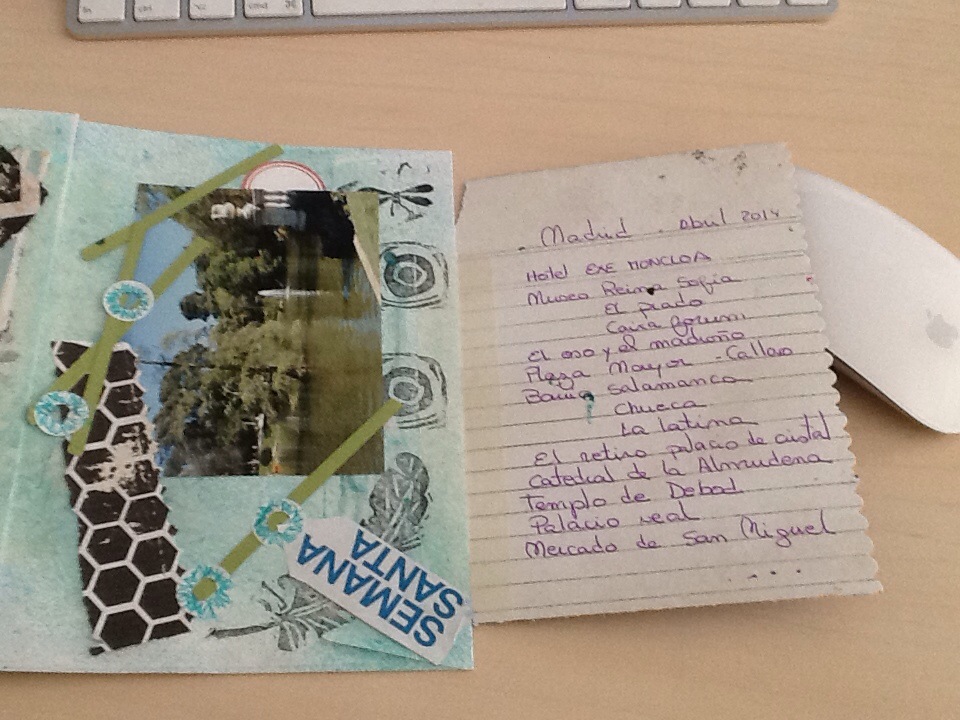 fn
ctrl
cmd
SEMANA
SANTA
Madrid . Abril 2014
Hotel EXE MONCLOA
Museo Reina Sofia
El prado
Caixa forum
El oso y el madroño
Plaza Mayor - Callao
Barrio Salamanca
Chueca
La latina
El retiro palacio de cristal
Catedral de la Almudena
Templo de Debod
Palacio real
Mercado de San Miguel